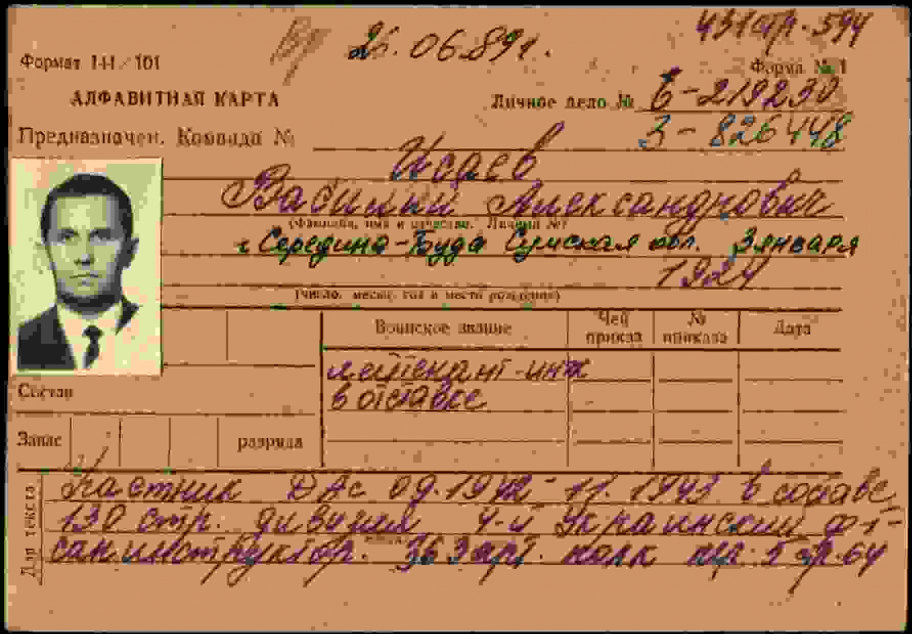 25.06.89г.
431 стр. 594
Формат 1-Н/101
Форма № 1
АЛФАВИТНАЯ КАРТА
Личное дело № Б-219230
Предназначен. Команда №
З-826448
Исаев
Василий Александрович
(Фамилия, имя и отчество. Личный №)
г. Середина-Буда Сумская обл. 3 января
1924
(число, месяц, год и место рождения)
Воинское звание
Чей приказа
№ приказа
Дата
лейтенант-инж
в отставке
Состав
Запас
разряда
Участник ДАс 09.1942-11.1943 в составе
130 стр. дивизия 4-й Украинский
санинструктор. 363 арт. полк
Для текста